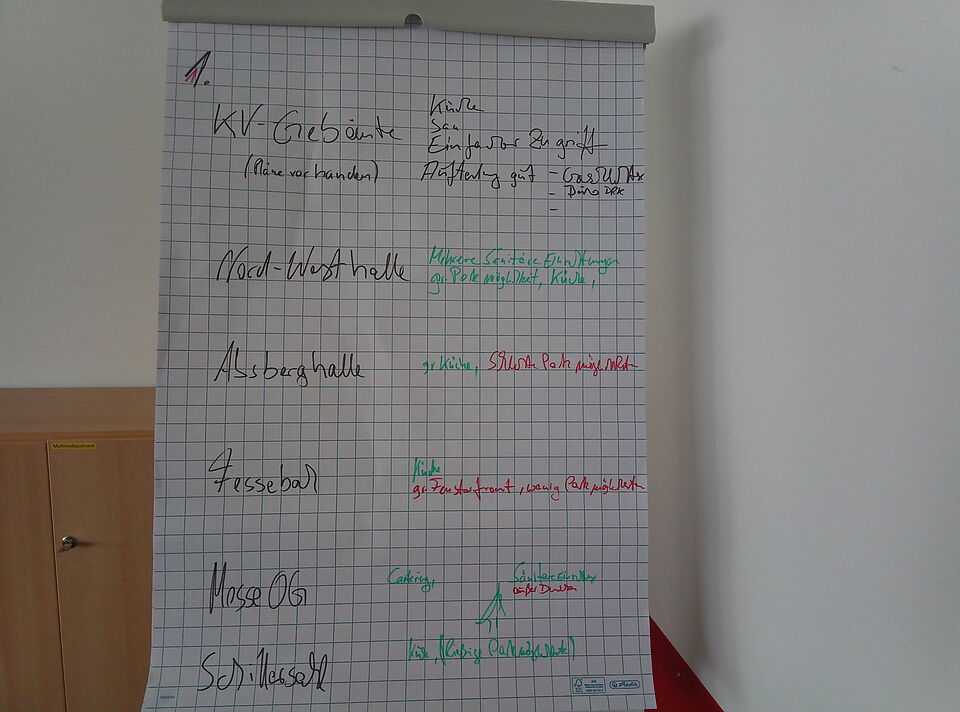 1.
KV-Gebäute
(Pläne vorhanden)
Küche
San
Einfacher Zugriff
Aufteilung gut -
Büro DRK
-
Nord-West halle
Mehrere Sanitäre Einrichtungen
gr. Parkmöglichkeit, Küche,
Absberghalle
gr Küche, Schlechte Parkmöglichkeiten
Fessebar
Küche
gr. Fensterfront, wenig Parkmöglichkeiten
Messe OG
Catering,
Sanitäre Einrichtg
außer Duschen
Schillersaal
Küche, (Parkmöglichkeite)
Multimediaschrank